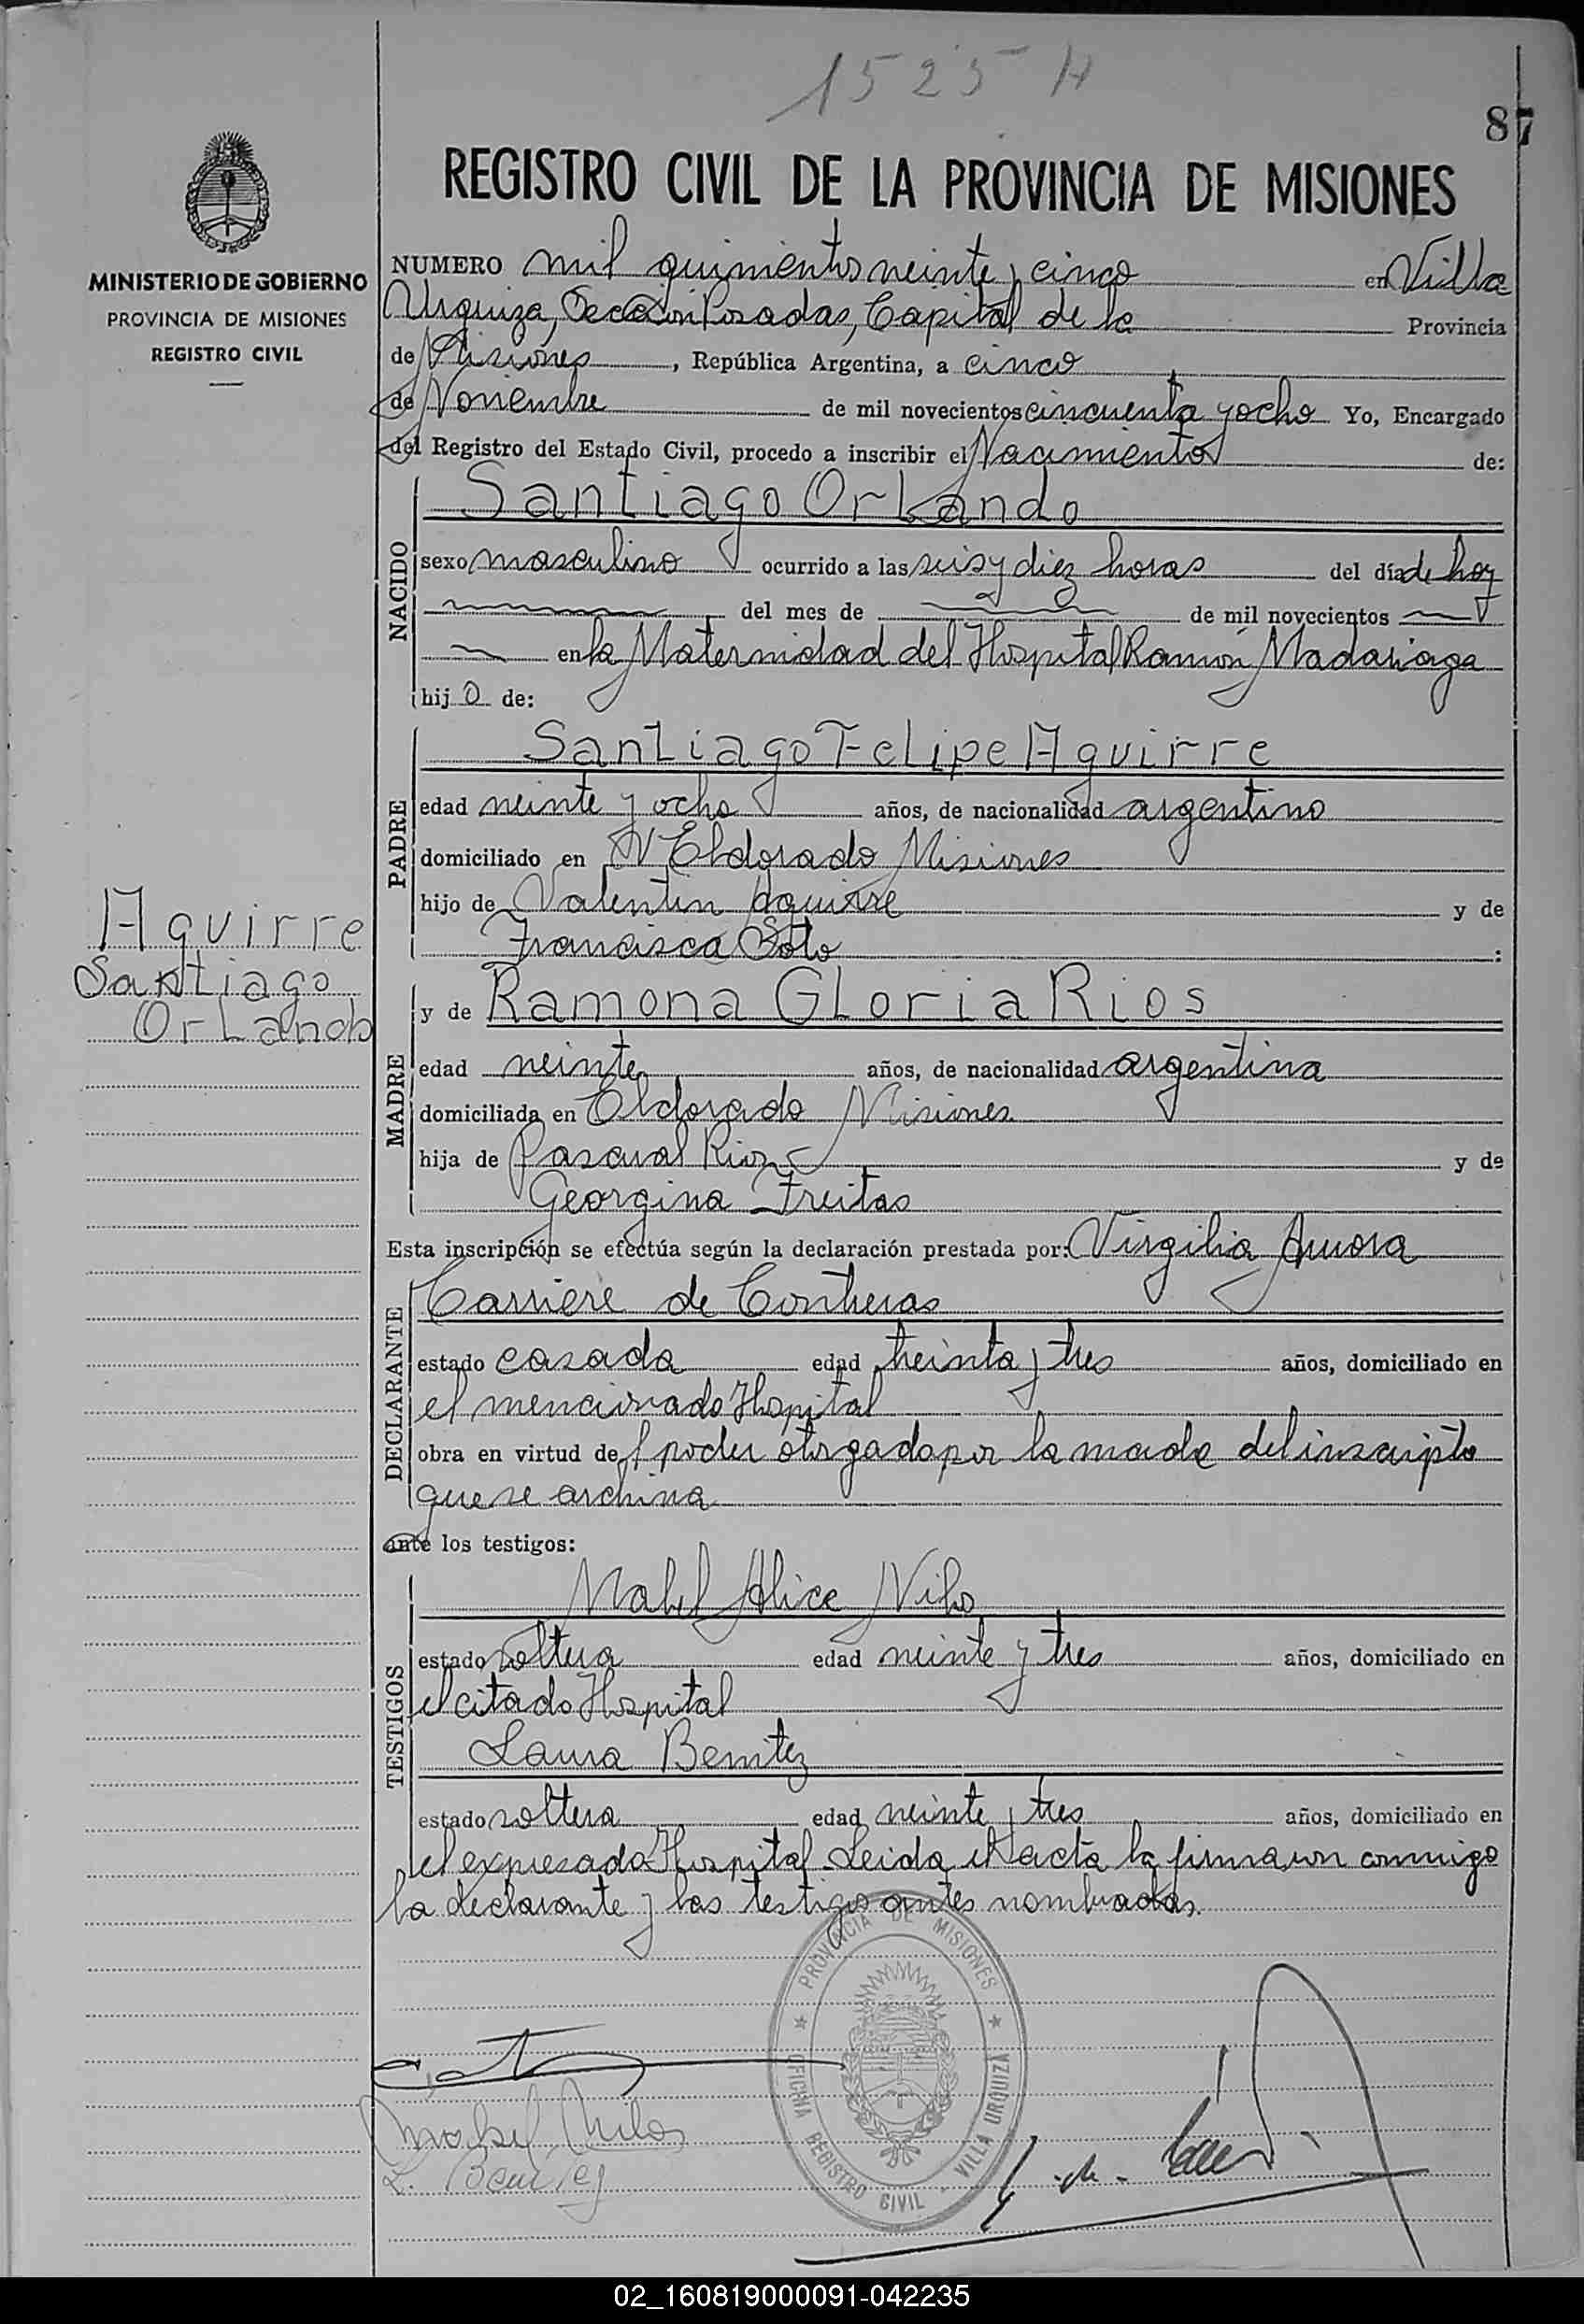 1525 H
87
MINISTERIO DE GOBIERNO
PROVINCIA DE MISIONES
REGISTRO CIVIL
REGISTRO CIVIL DE LA PROVINCIA DE MISIONES
NUMERO mil quinientos veinte y cinco en Villa
Urquiza, Sección Posadas, Capital de la Provincia
de Misiones, República Argentina, a cinco
de Noviembre de mil novecientos cincuenta y ocho Yo, Encargado
del Registro del Estado Civil, procedo a inscribir el Nacimiento de:
NACIDO
Santiago Orlando
sexo masculino ocurrido a las seis y diez horas del día de hoy
del mes de de mil novecientos
en la Maternidad del Hospital Ramón Madariaga
hijo de:
PADRE
Santiago Felipe Aguirre
edad veinte y ocho años, de nacionalidad argentino
domiciliado en Eldorado Misiones
hijo de Valentin Aguirre y de
Francisca Soto :
Aguirre
Santiago
Orlando
MADRE
y de Ramona Gloria Rios
edad veinte años, de nacionalidad argentina
domiciliada en Eldorado Misiones
hija de Pascual Rios y de
Georgina Freitas
Esta inscripción se efectúa según la declaración prestada por: Virgilia Aurora
DECLARANTE
Carriere de Contreras
estado casada edad treinta y tres años, domiciliado en
el mencionado Hospital
obra en virtud del poder otorgado por la madre del inscripto
que se archiva
ante los testigos:
TESTIGOS
Mabel Alice Nilo
estado soltera edad veinte y tres años, domiciliado en
el citado Hospital
Laura Benitez
estado soltera edad veinte y tres años, domiciliado en
el expresado Hospital Leida el acta la firmaron conmigo
la declarante y las testigos antes nombradas.
PROVINCIA DE MISIONES
OFICINA REGISTRO CIVIL - VILLA URQUIZA
L. Benitez
02_160819000091-042235